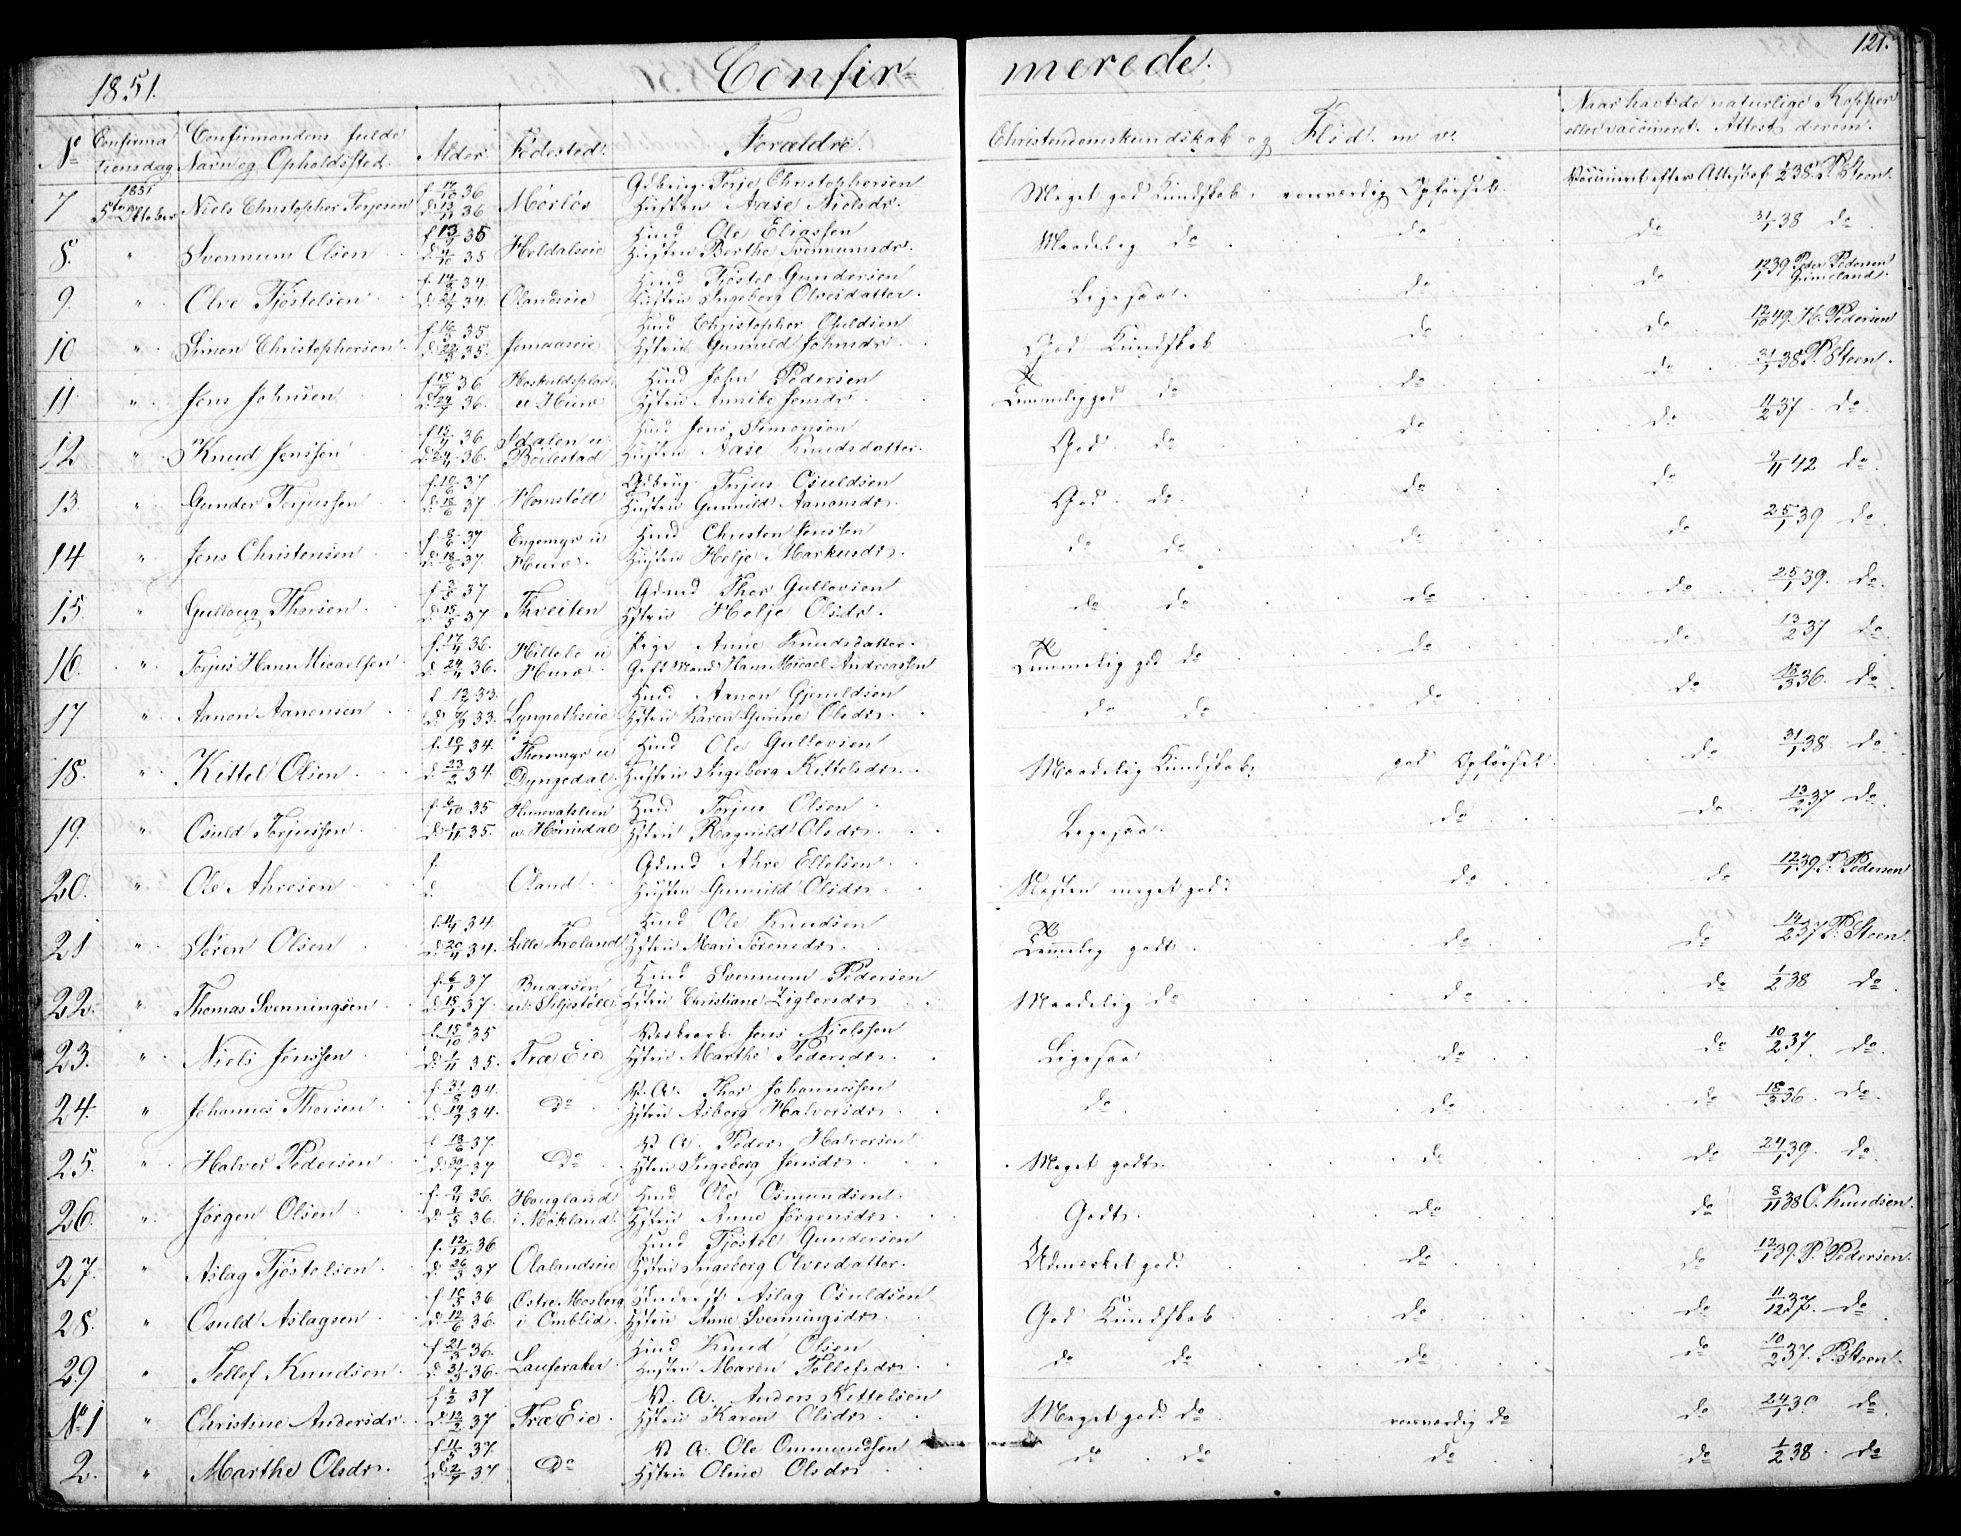 121.
1851. Confirmerede.
No Confirmationsdag Confirmandens fulde Navn og Opholdssted. Alder Fødested. Forældre. Christendomskundskab og Flid m. v. Naar havt de naturlige Kopper eller vaccineret. Attest derom.
7 1851 5te Oktober Niels Christopher Torjesen f. 36 d. 36 Mørløs Gdbrug. Torje Christophersen Hustru Aase Nielsdr. Meget god Kundskab. roesværdig Opførsel. Vaccineret efter Attest af 38 P. Steen.
8. " Svennum Olsen f. 13 35 d. 35 Heldalseie Huusd Ole Eliassen Hustru Berthe Svennumsdr. Maadelig do do do 31/1 38 do
9. " Olve Tjøstelsen f. 34 d. 34. Olandseie Huusd Tjøstel Gundersen Hustru Ingeborg Olvesdatter. Ligesaa. do do 12/1 39 Peder Pedersen Grimeland.
10 " Simen Christophersen. f. 35 d. 35. Jomaaseie Huusd Christopher Osuldsen Hstru Gunnild Johnsdr. God Kundskab do do 12/10 49. H. Pedersen
11 " Jens Johnsen f. 15 36 d. 29 36. Haskuldsplads u Hurv Huusd John Pedersen Hstru Annike Jensdr. Temmelig god do do do 31/1 38 P. Steen.
12. " Knud Jenssen f. 15 36 d. 24 36. Sdalen u Bøilestad Huusd Jens Simonsen Hustru Aase Knudsdatter. God do do do 11/2 37. do
13. " Gunder Torjussen f. 10 37 d. 18/6 37 Hornstølt Gdbrug. Torjus Osuldsen Hustru Gunnild Aanonsdr. God do do do 9/11 42 do
14 " Jens Christensen f. 8/6 37 d. 18/6 37 Engemyr u Hurv. Huusd Christen Jenssen Hustru Helje Markusdr. do do do do 25/1 39 do
15. " Gulloug Thorsen f. 37 d. 15/5 37 Thveiten Gdmd Thor Gullovsen Hstru Helje Olsdr. do do do do 25/1 39. do
16. " Torjus Hans Micaelsen f. 17/4 36. d. 24/4 36. Hillebe u Hurv. Pige Anne Knudsdatter. Gift Mand Hans Micael Andreassen Temmelig god do do do 13/2 37 do
17 " Aanon Aanonsen f. 33. d. 33. Lyngrothseie Huusd Aanon Gjeruldsen Hstru Karen Gurine Olsdr. do do do do 18/3 36. do
18. " Kittel Olsen f. 10/1 34. d. 23/2 34. Thorsmyr u Dyngedal. Huusd Ole Gullovsen Hustru Ingeborg Kittelsdr. Maadelig Kundskab, god Opførsel. do 31/1 38 do
19. " Osuld Torjussen f. 6/10 35 d. 1/11 35. Hunevatslien u Hørnsdal Huusd Torjus Olsen Hstru Ragnild Olsdr. Ligesaa. do do 13/2 37 do
20. " Ole Ahresen f. d. Oland Gdmd Ahre Ellefsen Hustru Gunnild Olsdr. Næsten meget god. do do 12/1 39 P. Pedersen
21 " Søren Olsen f. 11/4 34. d. 20/4 34. Lille Froland Huusd Ole Knudsen Hstru Mari Sørensdr. Temmelig godt do do 14/2 37 P. Steen.
22. " Thomas Svenningsen f. 6/1 37 d. 15/1 37. Buaasen u. Seljestøll. Huusd Svennum Pedersen Hstru Christiane Ziglersdr. Maadelig do do do 1/2 38 do
23. " Niels Jenssen f. 15/10 35 d. 1/11 35. Træ Eie Værksarb. Jens Nielssen Hstru Marthe Pedersdr. Ligesaa do do 10/2 37. do.
24. " Johannes Thorsen f. 31/8 34. d. 14/9 34. Do V. A. Thor Johannessen Hstru Asborg Halvorsdr. do do do 18/3 36. do
25. " Halvor Pedersen f. 18/6 37. d. 30/7 37 Do V. A. Peder Halvorsen Hstru Ingeborg Jensdr. Meget godt. do do 24/1 39. do
26. " Jørgen Olsen f. 9/4 36. d. 1/5 36. Hougland i Mökland. Huusd Ole Osmundsen Hstru Anne Jørgensdr. Godt. do do 8/11 38 O. Knudsen.
27. " Aslag Tjøstelsen f. 12/12 36 d. 26/3 37 Olalandseie Huusd Tjøstel Gundersen Hstru Ingeborg Olvesdatter. Udmerket god. do do 12/1 39. P. Pedersen
28. " Osuld Aslagsen f. 18/5 36 d. 12/6 36. Østre Mosberg i Omblid. Aslag Osuldsen Hstru Anne Svenningsdr. God Kundskab do do 11/12 37. do
29 " Tellef Knudsen f. 21/5 36. d. 31/5 36. Lauferaker. Huusd Knud Olsen Hustru Maren Tellefsdr. do do do do 10/2 37. P. Steen.
No 1 " Christine Andersdr. f. 37 d. 12/2 37 Træ Eie. V. A. Anders Kittelsen Hstru Karen Olsdr. Meget god do roesværdig do do 24/1 39. do
2. " Marthe Olsdr. f. 37. d. 37 Do V. A. Ole Ommundsen Hstru Oline Olsdr. do do do do 1/2 38. do